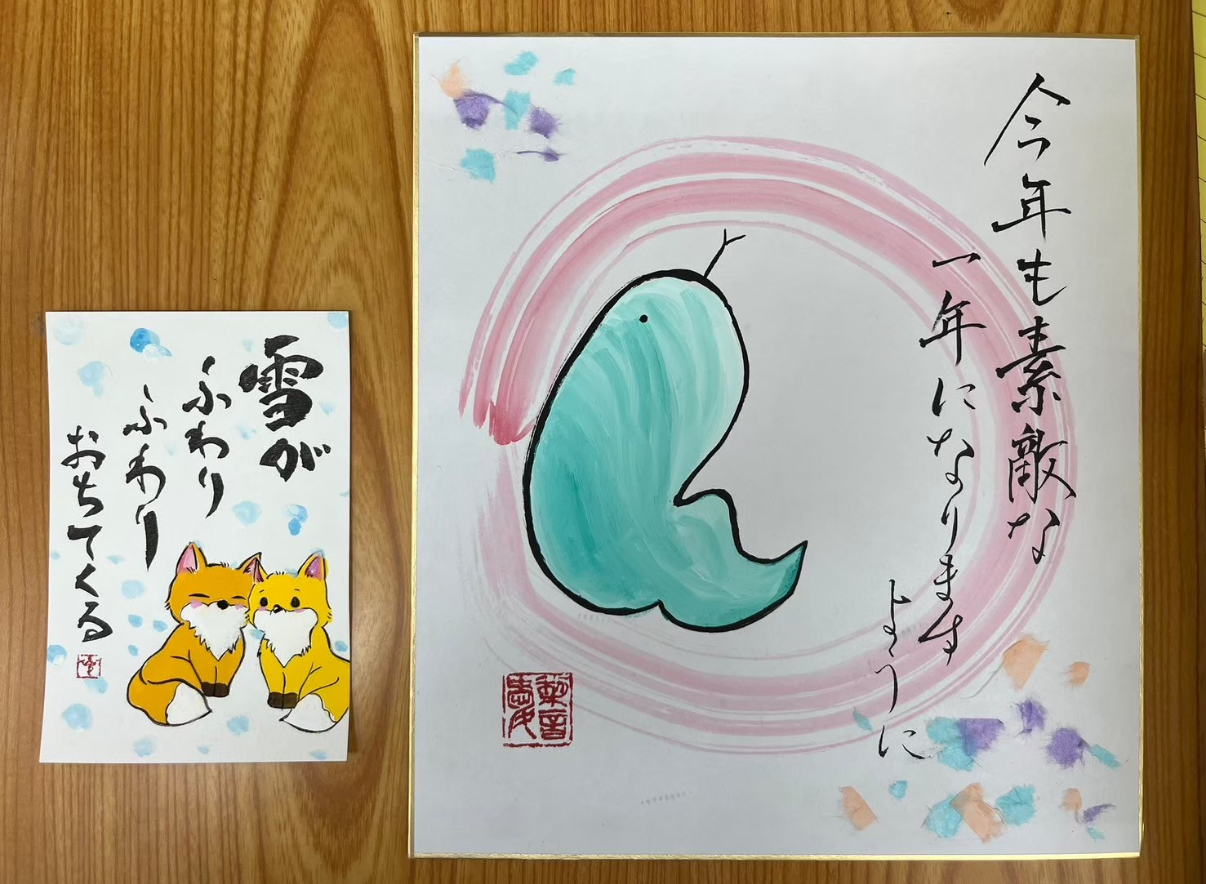 雪が
ふわり
ふわり
おちてくる
今年も素敵な
一年になります
ように